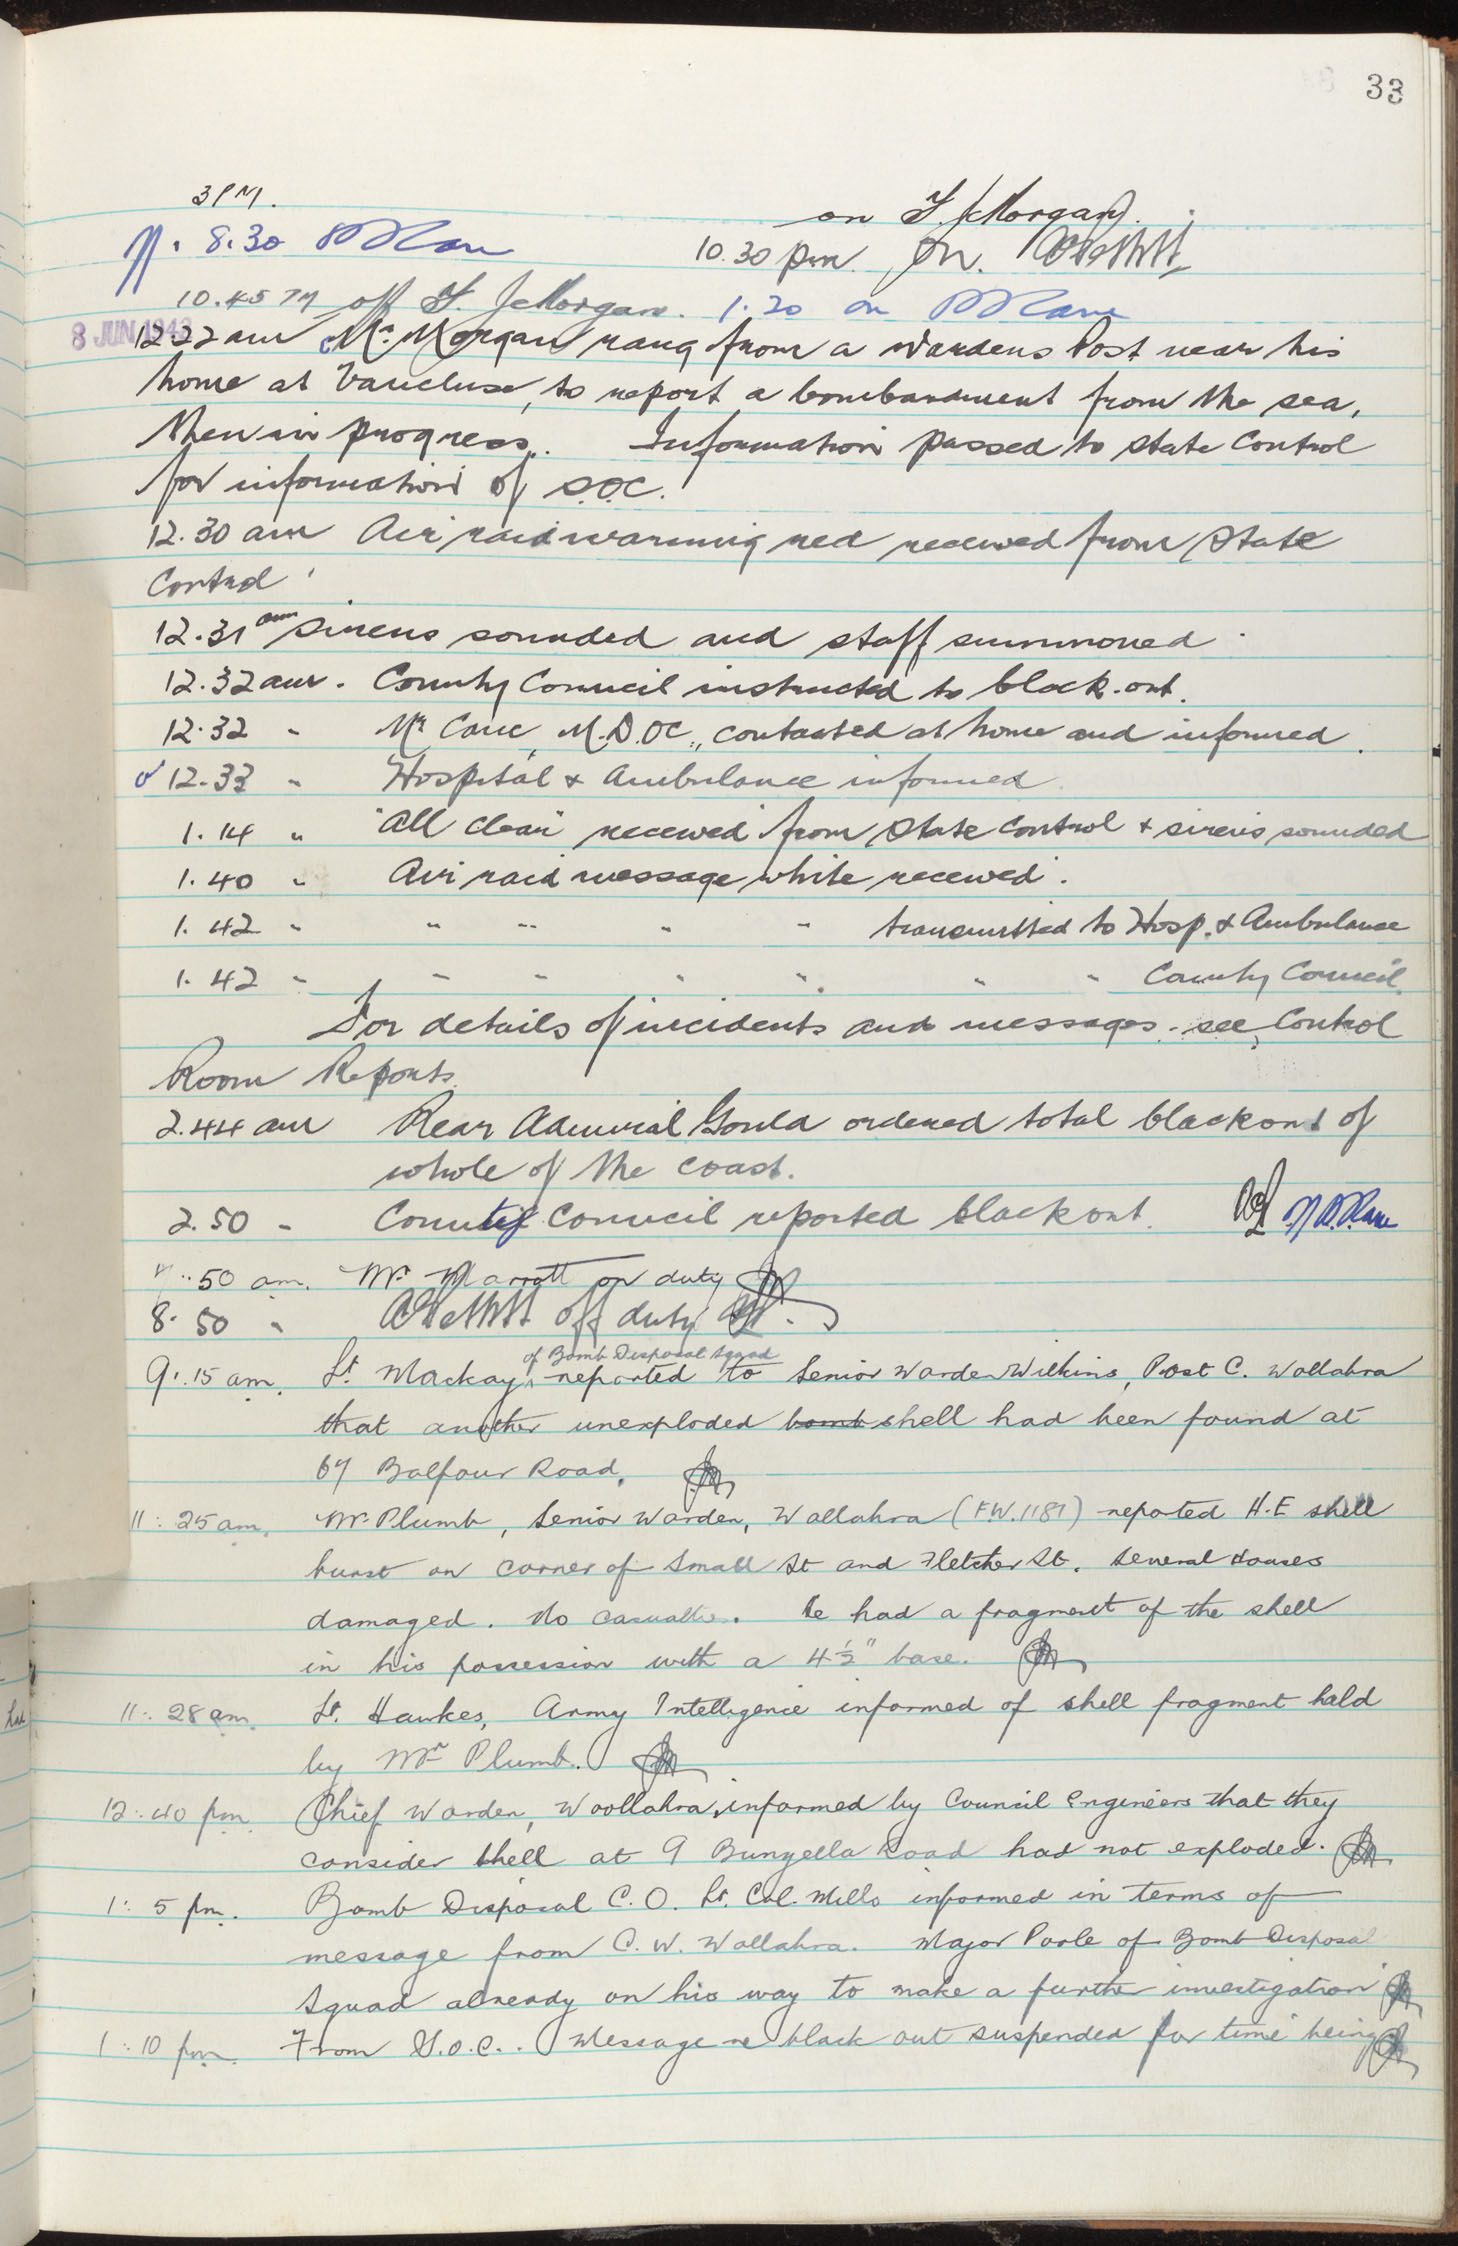 33
3 PM. on F. J. Morgan.
8.30
10.30 pm on.
10.45 PM off F. J. Morgan. 1.20 on
8 JUN 1942
12.22 am Mr. Morgan rang from a Wardens Post near his
home at Vaucluse, to report a bombardment from the sea,
then in progress. Information passed to State Control
for information of S.O.C.
12.30 am Air raid warning red received from State
Control
12.31 am Sirens sounded and staff summoned
12.32 am. County Council instructed to black-out.
12.32 " Mr Cane, M.D.O.C., contacted at home and informed.
12.33 " Hospital & Ambulance informed
1.14 " "All clear" received from State Control & sirens sounded
1.40 " Air raid message white received.
1.42 " " " " " transmitted to Hosp. & Ambulance
1.42 " " " " " " " County Council.
For details of incidents and messages - see Control
Room Reports
2.44 am Rear Admiral Gould ordered total blackout of
whole of the coast.
2.50 " County Council reported blackout.
50 am. Mr Marratt on duty
8.50 " off duty
of Bomb Disposal Squad
9.15 am. Lt. Mackay reported to Senior Warden Wilkins, Post C. Wollahra
that another unexploded bomb shell had been found at
67 Balfour Road.
11:25 am. Mr Plumb, Senior Warden, Wollahra (F.W.1181) reported H.E shell
burst on corner of Small St and Fletcher St. Several Houses
damaged. No casualties. He had a fragment of the shell
in his possession with a 4½" base.
11:28 am. Lt. Hawkes, Army Intelligence informed of shell fragment held
by Mr Plumb.
12:40 pm. Chief Warden, Woollahra, informed by Council Engineers that they
consider shell at 9 Bunyella Road had not exploded.
1:5 pm. Bomb Disposal C.O. Lt. Col. Mills informed in terms of
message from C.W. Wollahra. Major Poole of Bomb Disposal
Squad already on his way to make a further investigation
1:10 pm. From S.O.C.. Message re black out suspended for time being